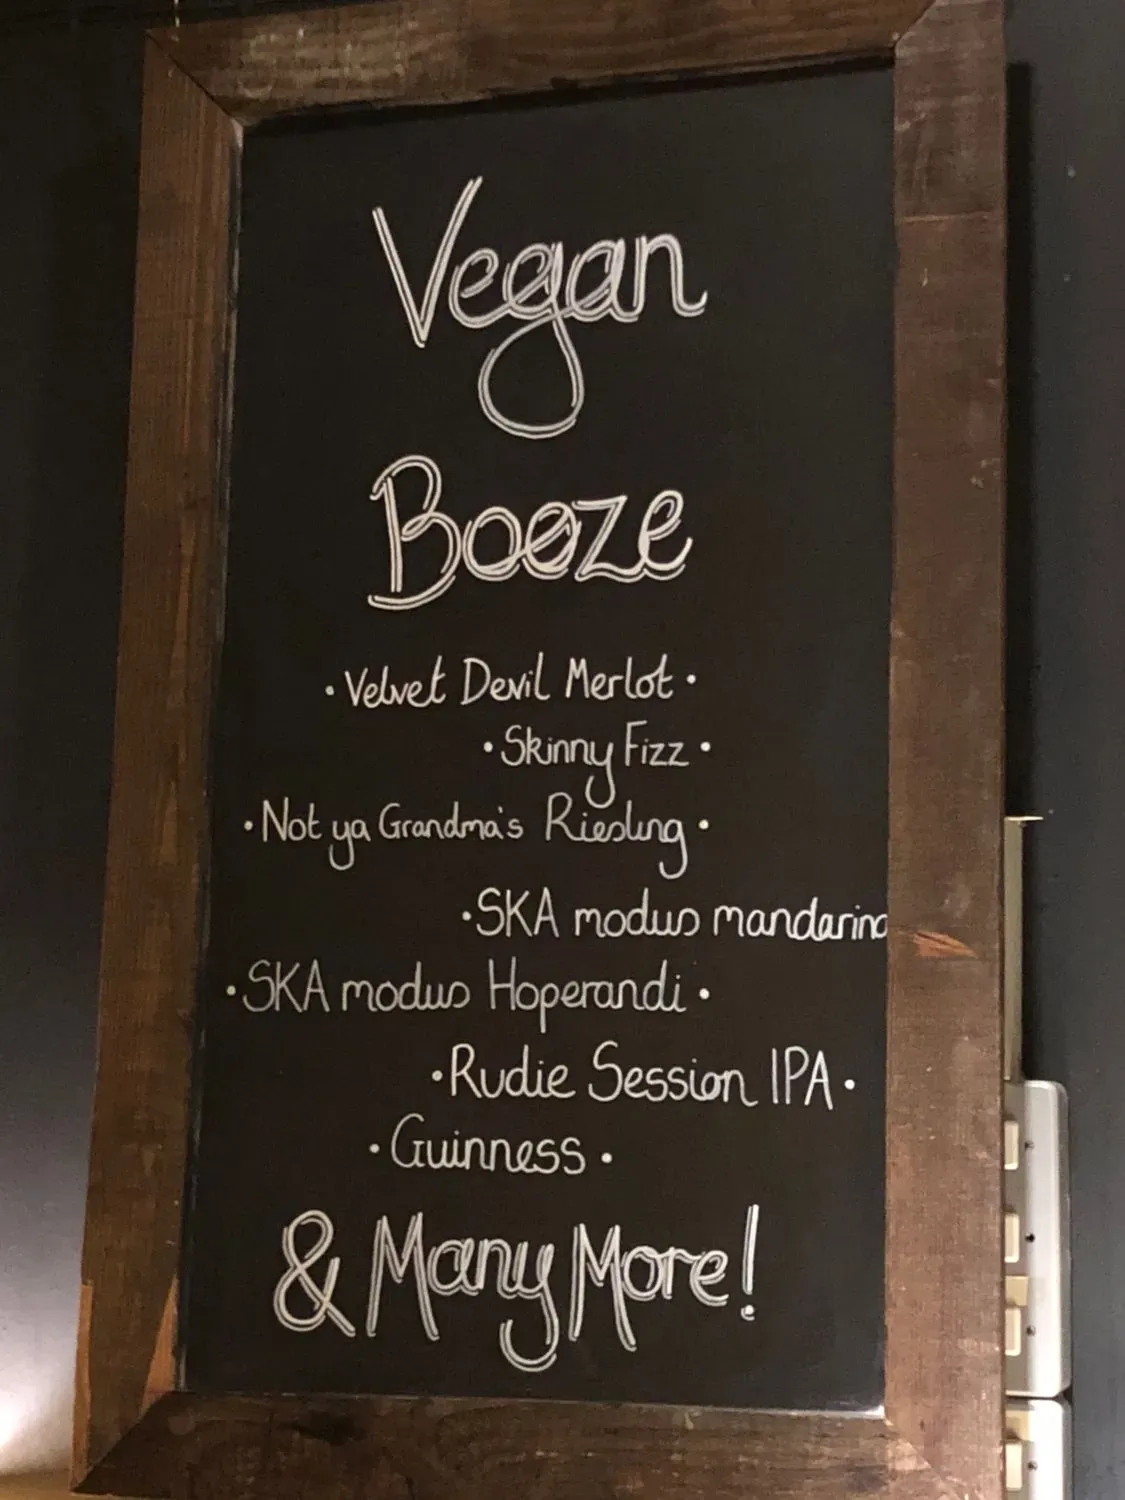 Vegan
Booze
• Velvet Devil Merlot •
• Skinny Fizz •
• Not ya Grandma's Riesling •
• SKA modus mandarina
• SKA modus Hoperandi •
• Rudie Session IPA •
• Guinness •
& Many More!